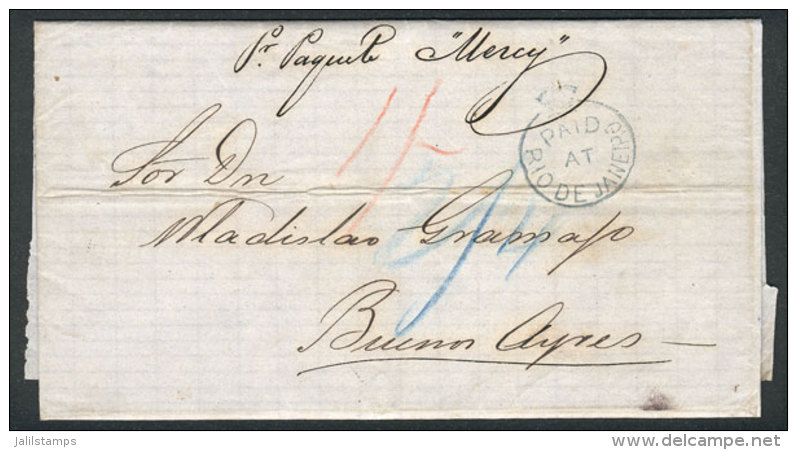 Pr. Paquete "Mercy"
PAID
AT
RIO DE JANEIRO
Sor Dn
Wladislao Gramajo
Buenos Ayres
jalilstamps
delcampe.net